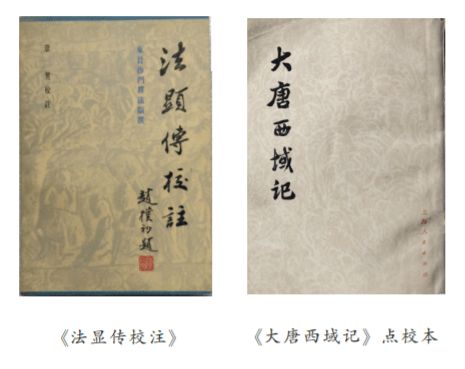 法顯傳校註
趙樸初題
東晉沙門釋法顯撰
章巽校註
大唐西域记
上海人民出版社
《法显传校注》
《大唐西域记》点校本